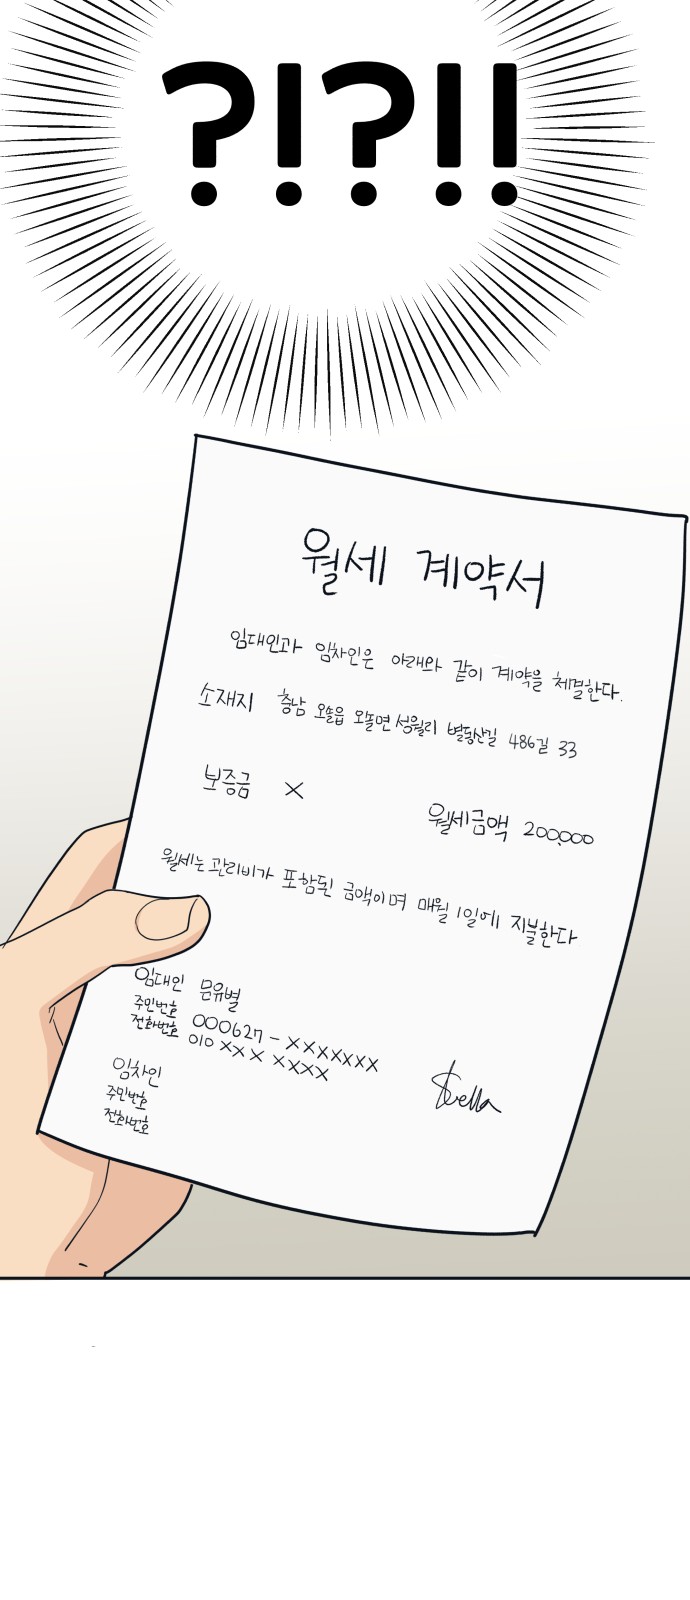 ?!?!!
월세 계약서
임대인과 임차인은 아래와 같이 계약을 체결한다.
소재지 충남 오솔읍 오솔면 성월리 별동산길 486길 33
보증금 X 월세금액 200,000
월세는 관리비가 포함된 금액이며 매월 1일에 지불한다
임대인 문유별
주민번호 000627 - XXXXXXX
전화번호 010 XXX XXXX
Stella
임차인
주민번호
전화번호